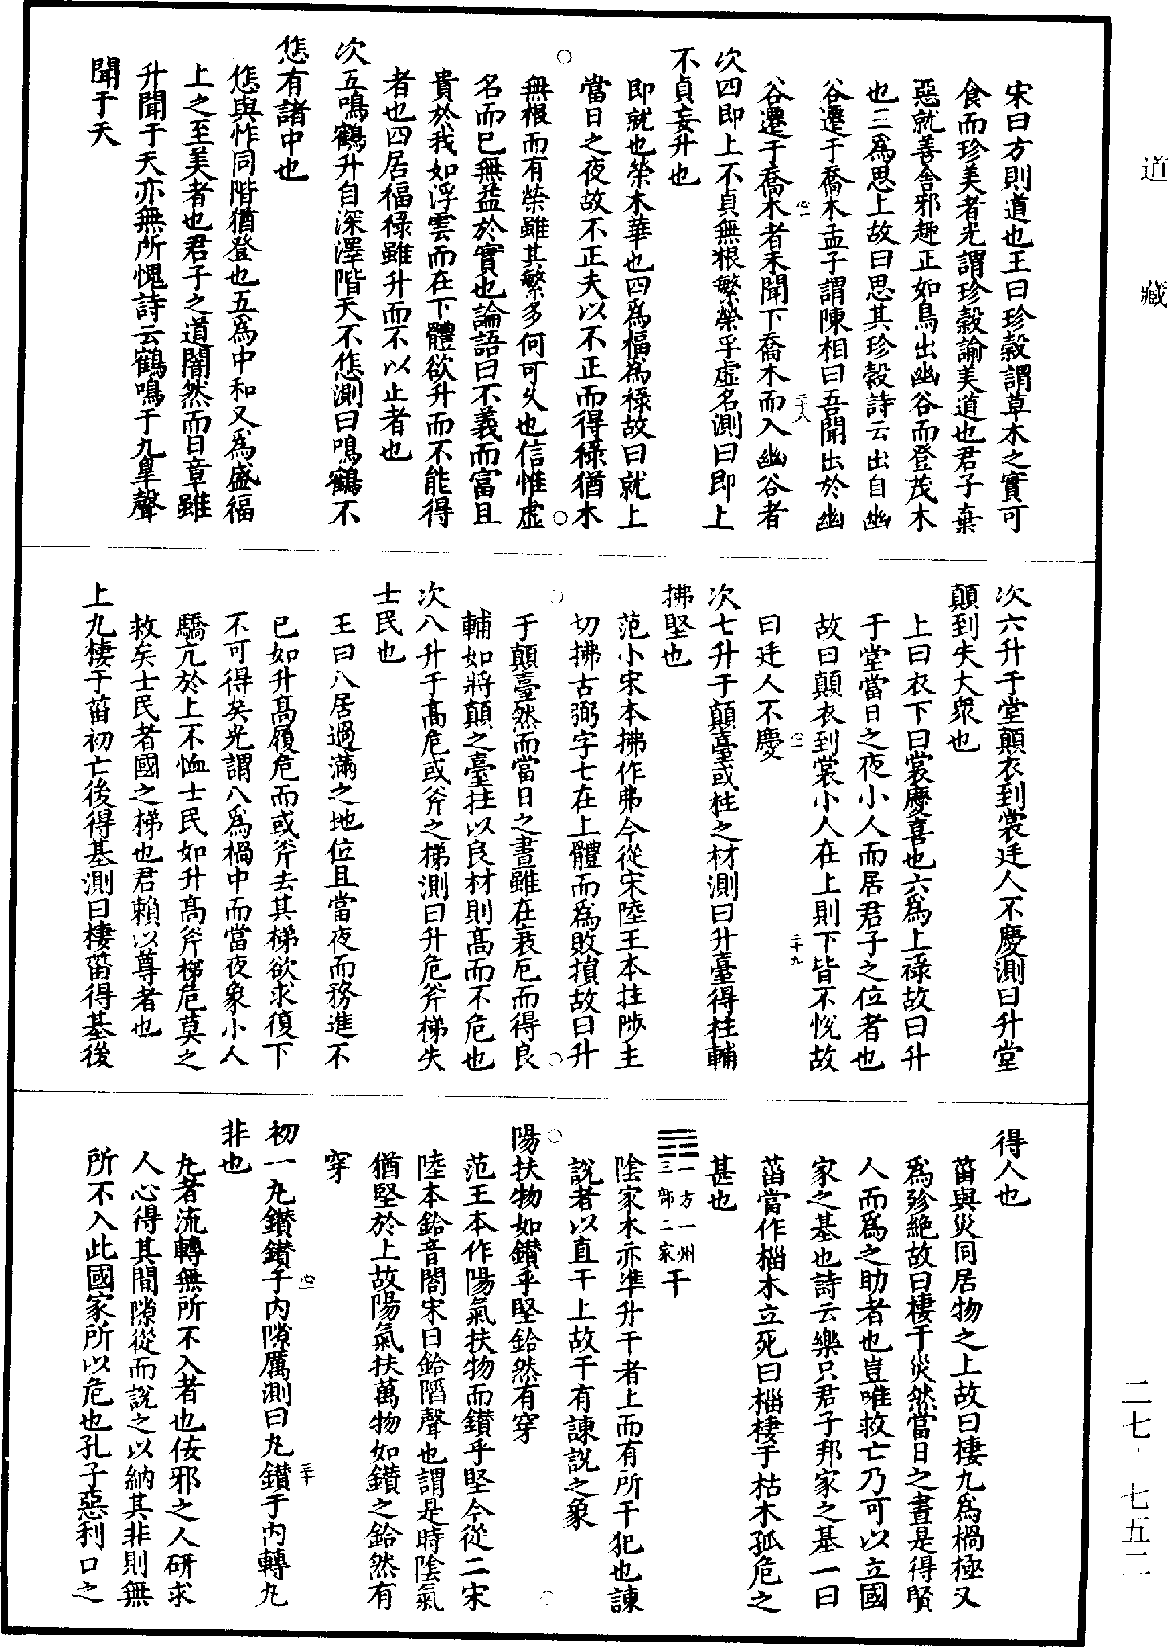 道藏
宋曰方則道也王曰珍穀謂草木之實可
食而珍美者光謂珍穀諭美道也君子棄
惡就善舍邪趣正如鳥出幽谷而登茂木
也二爲思上故曰思其珍穀詩云出自幽
谷遷于喬木孟子謂陳相曰吾聞出於幽
谷遷于喬木者未聞下喬木而入幽谷者
心一
二十八
次四即上不貞無根繁榮孚虛名測曰即上
不貞妄升也
即就也榮木華也四爲福爲祿故曰就上
當日之夜故不正夫以不正而得祿猶木
無根而有榮雖其繁多何可久也信惟虛
名而已無益於實也論語曰不義而富且
貴於我如浮雲而在下體欲升而不能得
者也四居福祿雖升而不以止者也
次五鳴鶴升自深澤階天不㤰測曰鳴鶴不
㤰有諸中也
㤰與怍同階猶登也五爲中和又爲盛福
上之至美者也君子之道闇然而日章雖
升聞于天亦無所愧詩云鶴鳴于九臯聲
聞于天
次六升于堂顛衣到裳廷人不慶測曰升堂
顛到失大衆也
上曰衣下曰裳慶喜也六爲上祿故曰升
于堂當日之夜小人而居君子之位者也
故曰顛衣到裳小人在上則下皆不悅故
曰廷人不慶
心一
二十九
次七升于顛臺或拄之材測曰升臺得拄輔
拂堅也
范小宋本拂作弗今從宋陸王本拄陟主
切拂古弼字七在上體而爲敗損故曰升
于顛臺然而當日之晝雖在衰厄而得良
輔如將顛之臺拄以良材則高而不危也
次八升于高危或斧之梯測曰升危斧梯失
士民也
王曰八居過滿之地位且當夜而務進不
已如升高履危而或斧去其梯欲求復下
不可得矣光謂八爲禍中而當夜象小人
驕亢於上不恤士民如升高斧梯危莫之
救矣士民者國之梯也君賴以尊者也
上九棲于菑初亡後得基測曰棲菑得基後
得人也
菑與災同居物之上故曰棲九爲禍極又
爲殄絕故曰棲于災然當日之晝是得賢
人而爲之助者也豈唯救亡乃可以立國
家之基也詩云樂只君子邦家之基一曰
菑當作椔木立死曰椔棲于枯木孤危之
甚也
一方一州
三部二家
干
陰家木亦準升干者上而有所干犯也諫
說者以直干上故干有諫說之象
陽扶物如鑽乎堅鉿然有穿
范王本作陽氣扶物而鑽乎堅今從二宋
陸本鉿音閤宋曰鉿䧟聲也謂是時陰氣
猶堅於上故陽氣扶萬物如鑽之鉿然有
穿
初一丸鑽鑽于內隙厲測曰丸鑽于內轉丸
非也
心一
三十
丸者流轉無所不入者也佞邪之人研求
人心得其閒隙從而說之以納其非則無
所不入此國家所以危也孔子惡利口之
二七·七五二